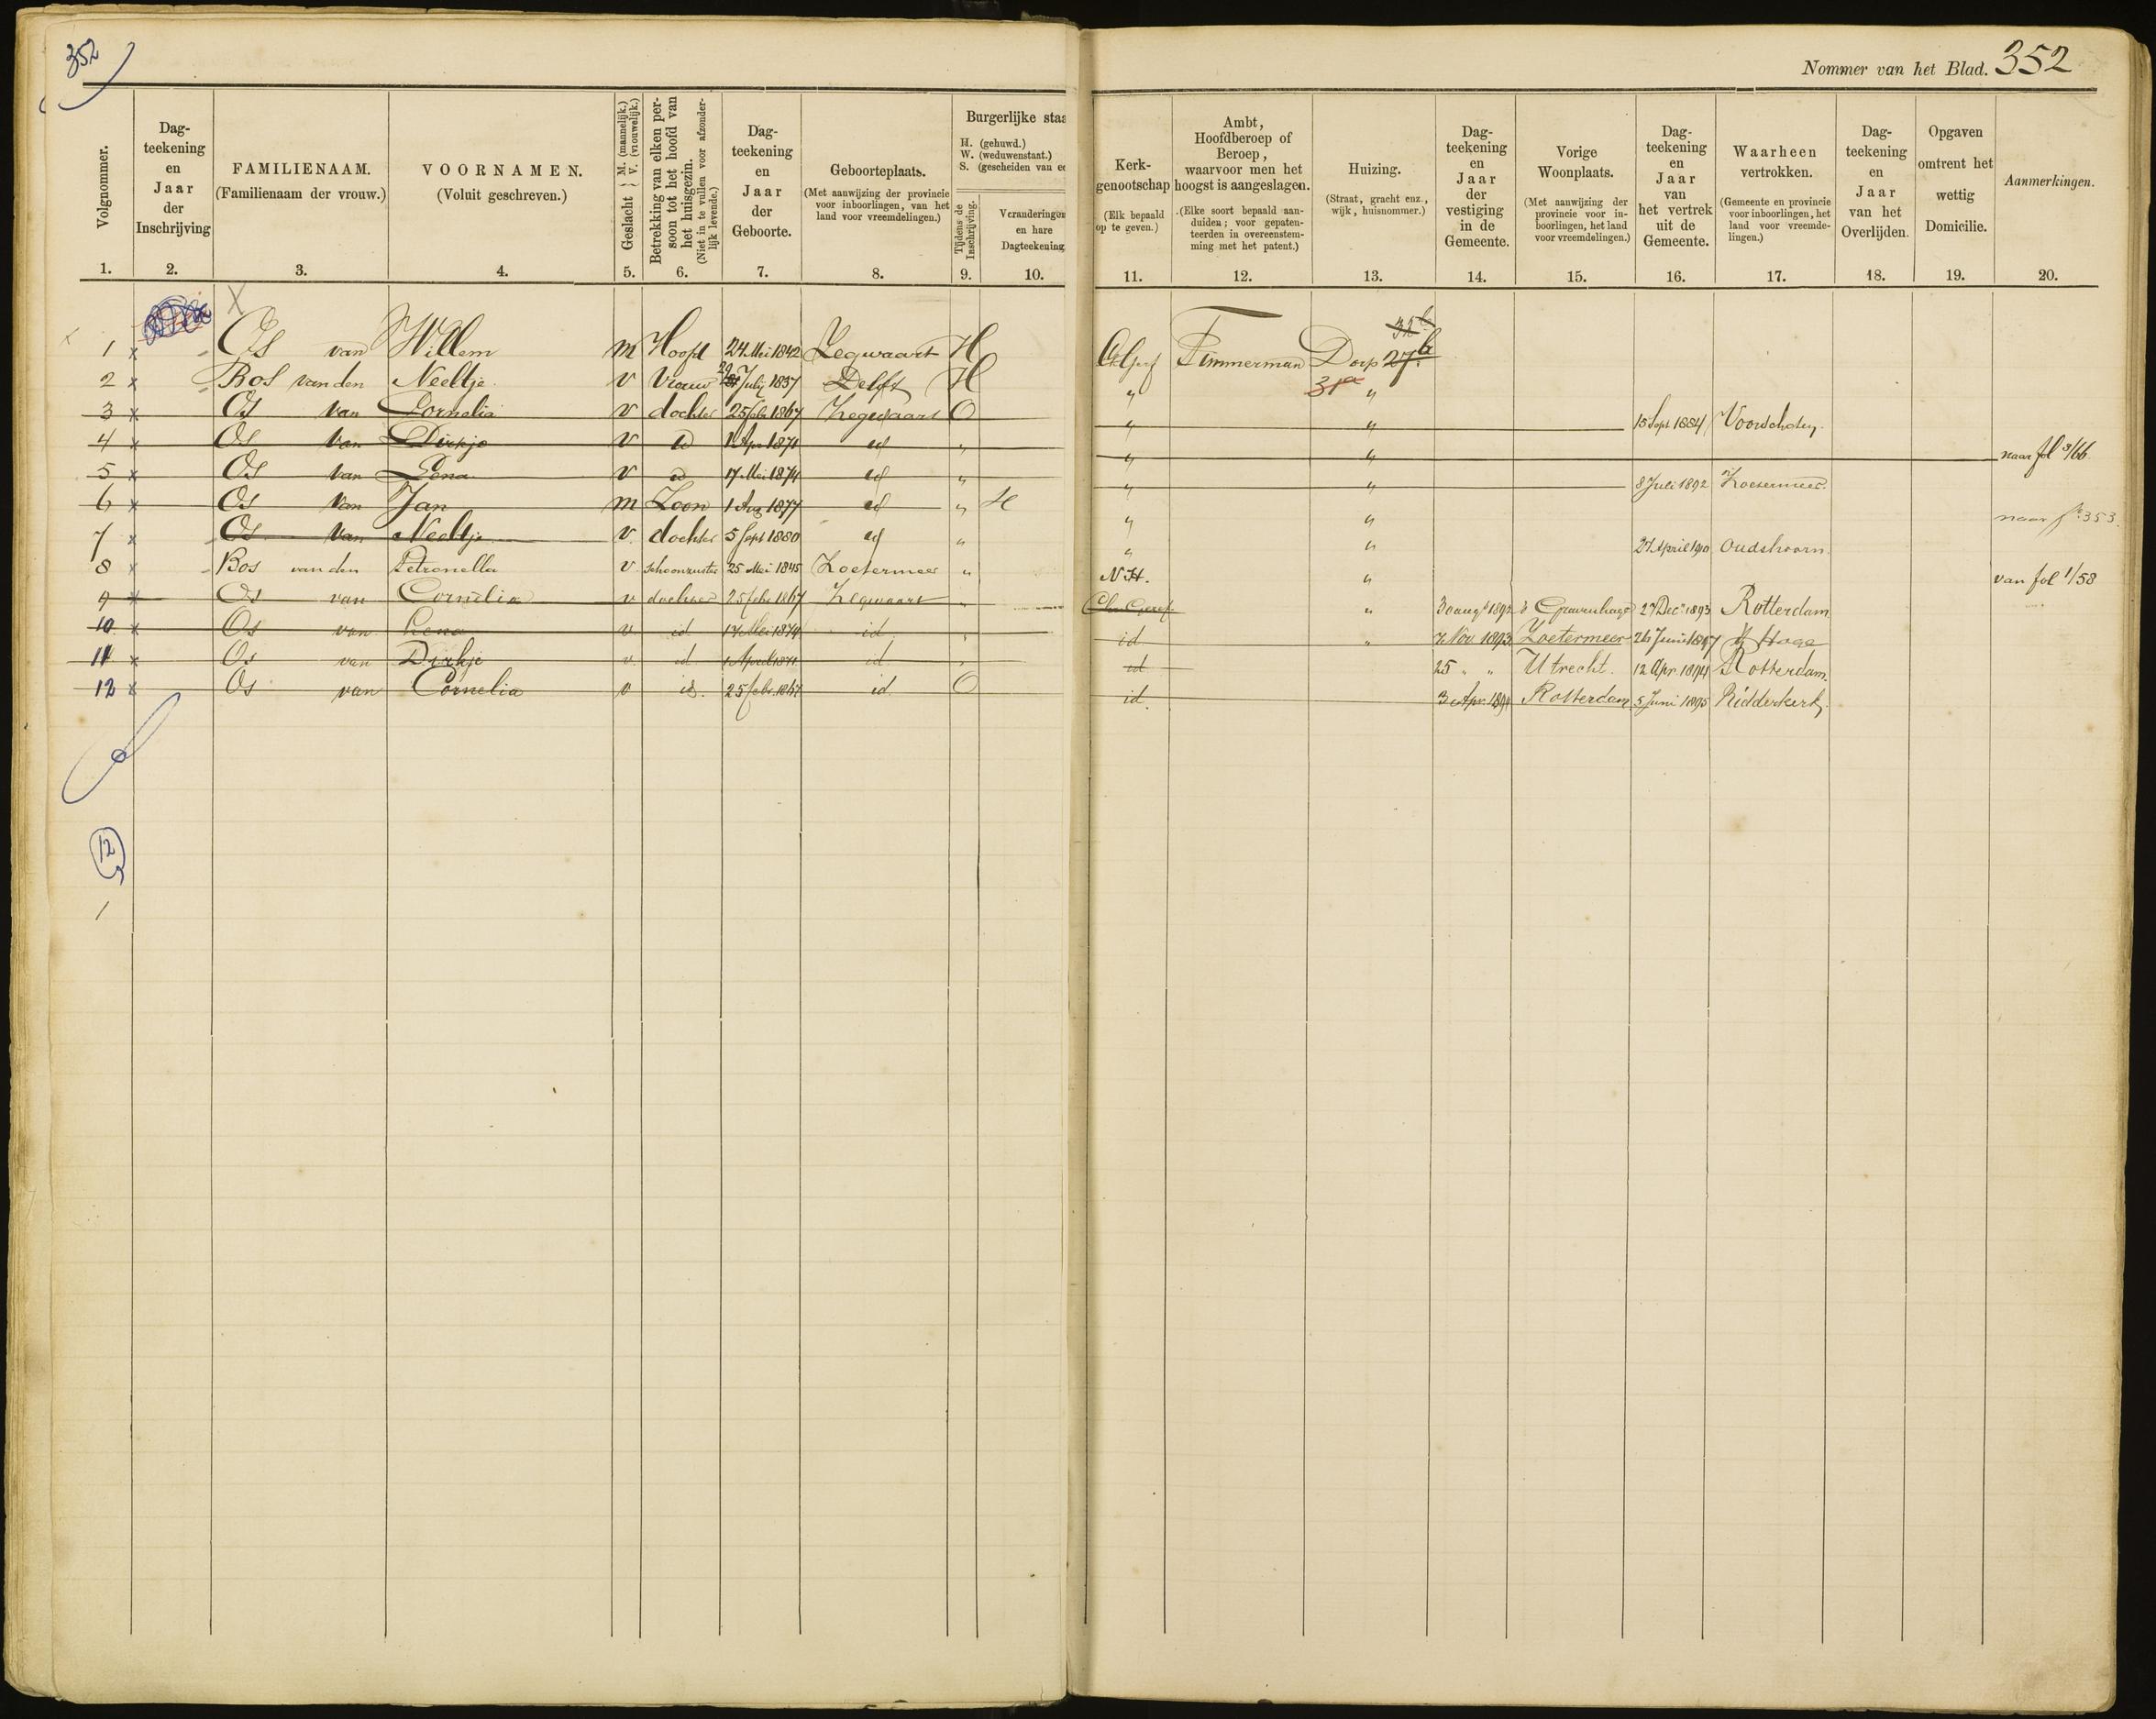 352
Nommer van het Blad. 352
Volgnommer.
1.
Dag-
teekening
en
Jaar
der
Inschrijving
2.
FAMILIENAAM.
(Familienaam der vrouw.)
3.
VOORNAMEN.
(Voluit geschreven.)
4.
Geslacht } M. (mannelijk.) V. (vrouwelijk.)
5.
Betrekking van elken per-
soon tot het hoofd van
het huisgezin.
(Niet in te vullen voor afzonder-
lijk levende.)
6.
Dag-
teekening
en
Jaar
der
Geboorte.
7.
Geboorteplaats.
(Met aanwijzing der provincie
voor inboorlingen, van het
land voor vreemdelingen.)
8.
Burgerlijke staa
H. (gehuwd.)
W. (weduwenstant.)
S. (gescheiden van ec
Tijdens de
Inschrijving.
9.
Veranderingen
en hare
Dagteekening
10.
Kerk-
genootschap
(Elk bepaald
op te geven.)
11.
Ambt,
Hoofdberoep of
Beroep,
waarvoor men het
hoogst is aangeslagen.
(Elke soort bepaald aan-
duiden; voor gepaten-
teerden in overeenstem-
ming met het patent.)
12.
Huizing.
(Straat, gracht enz.,
wijk, huisnommer.)
13.
Dag-
teekening
en
Jaar
der
vestiging
in de
Gemeente.
14.
Vorige
Woonplaats.
(Met aanwijzing der
provincie voor in-
boorlingen, het land
voor vreemdelingen.)
15.
Dag-
teekening
en
Jaar
van
het vertrek
uit de
Gemeente.
16.
Waarheen
vertrokken.
(Gemeente en provincie
voor inboorlingen, het
land voor vreemde-
lingen.)
17.
Dag-
teekening
en
Jaar
van het
Overlijden.
18.
Opgaven
omtrent het
wettig
Domicilie.
19.
Aanmerkingen.
20.
X
1 x Os van Willem m Hoofd 24 Mei 1842 Zegwaart H Timmerman Dorp 27b
2 x Bos van den Neeltje v Vrouw 29 July 1837 Delft H " 31a "
3 x Os van Cornelia v dochter 25 feb 1867 Zegwaart O " " 15 Sept 1884 Voorschoten
4 x Os van Dirkje v id 1 Apr 1871 id " " " naar fol 3/66
5 x Os van Lena v id 17 Mei 1874 id " " " 8 Juli 1892 Zoetermeer.
6 x Os van Jan m Zoon 1 Aug 1877 id " H " " naar fo 353.
7 x Os van Neeltje v. dochter 5 Sept 1880 id " " " 27 April 1900 Oudshoorn.
8 x Bos van den Petronella v. schoonzuster 25 Mei 1845 Zoetermeer " N.H. " van fol 1/58
9 x Os van Cornelia v dochter 25 febr 1867 Zegwaart " Chr. Geref " 30 aug 1892 's Gravenhage 27 Dec 1893 Rotterdam
10. x Os van Lena v. id 17 Mei 1874 id. " id " 7 Nov 1893 Zoetermeer 26 Juni 1897 's Hage
11 x Os van Dirkje v. id 1 April 1871 id. " id 25 " " Utrecht. 12 Apr. 1894 Rotterdam.
12 x Os van Cornelia v id. 25 febr. 1867 id. O id. 3 Apr 1894 Rotterdam 5 Juni 1895 Ridderkerk.
12